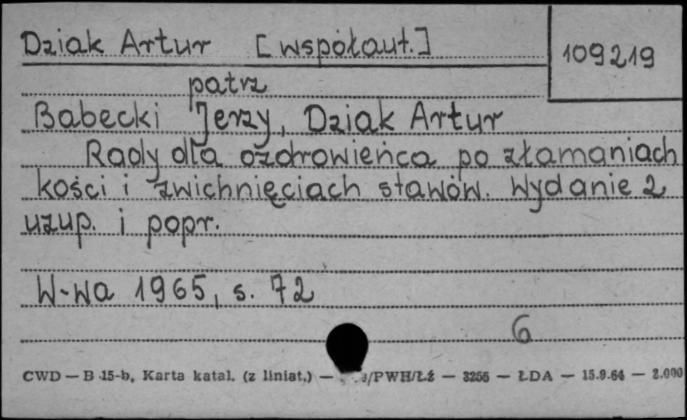 Dziak Artur [współaut.]
109219
patrz
Babecki Jerzy, Dziak Artur
Rady dla ozdrowieńca po złamaniach
kości i zwichnięciach stawów. Wydanie 2
uzup. i popr.
W-wa 1965, s. 72
6
CWD — B 15-b, Karta katal. (z liniat.) — /PWH/Łź — 3256 — ŁDA — 15.9.64 — 2.000